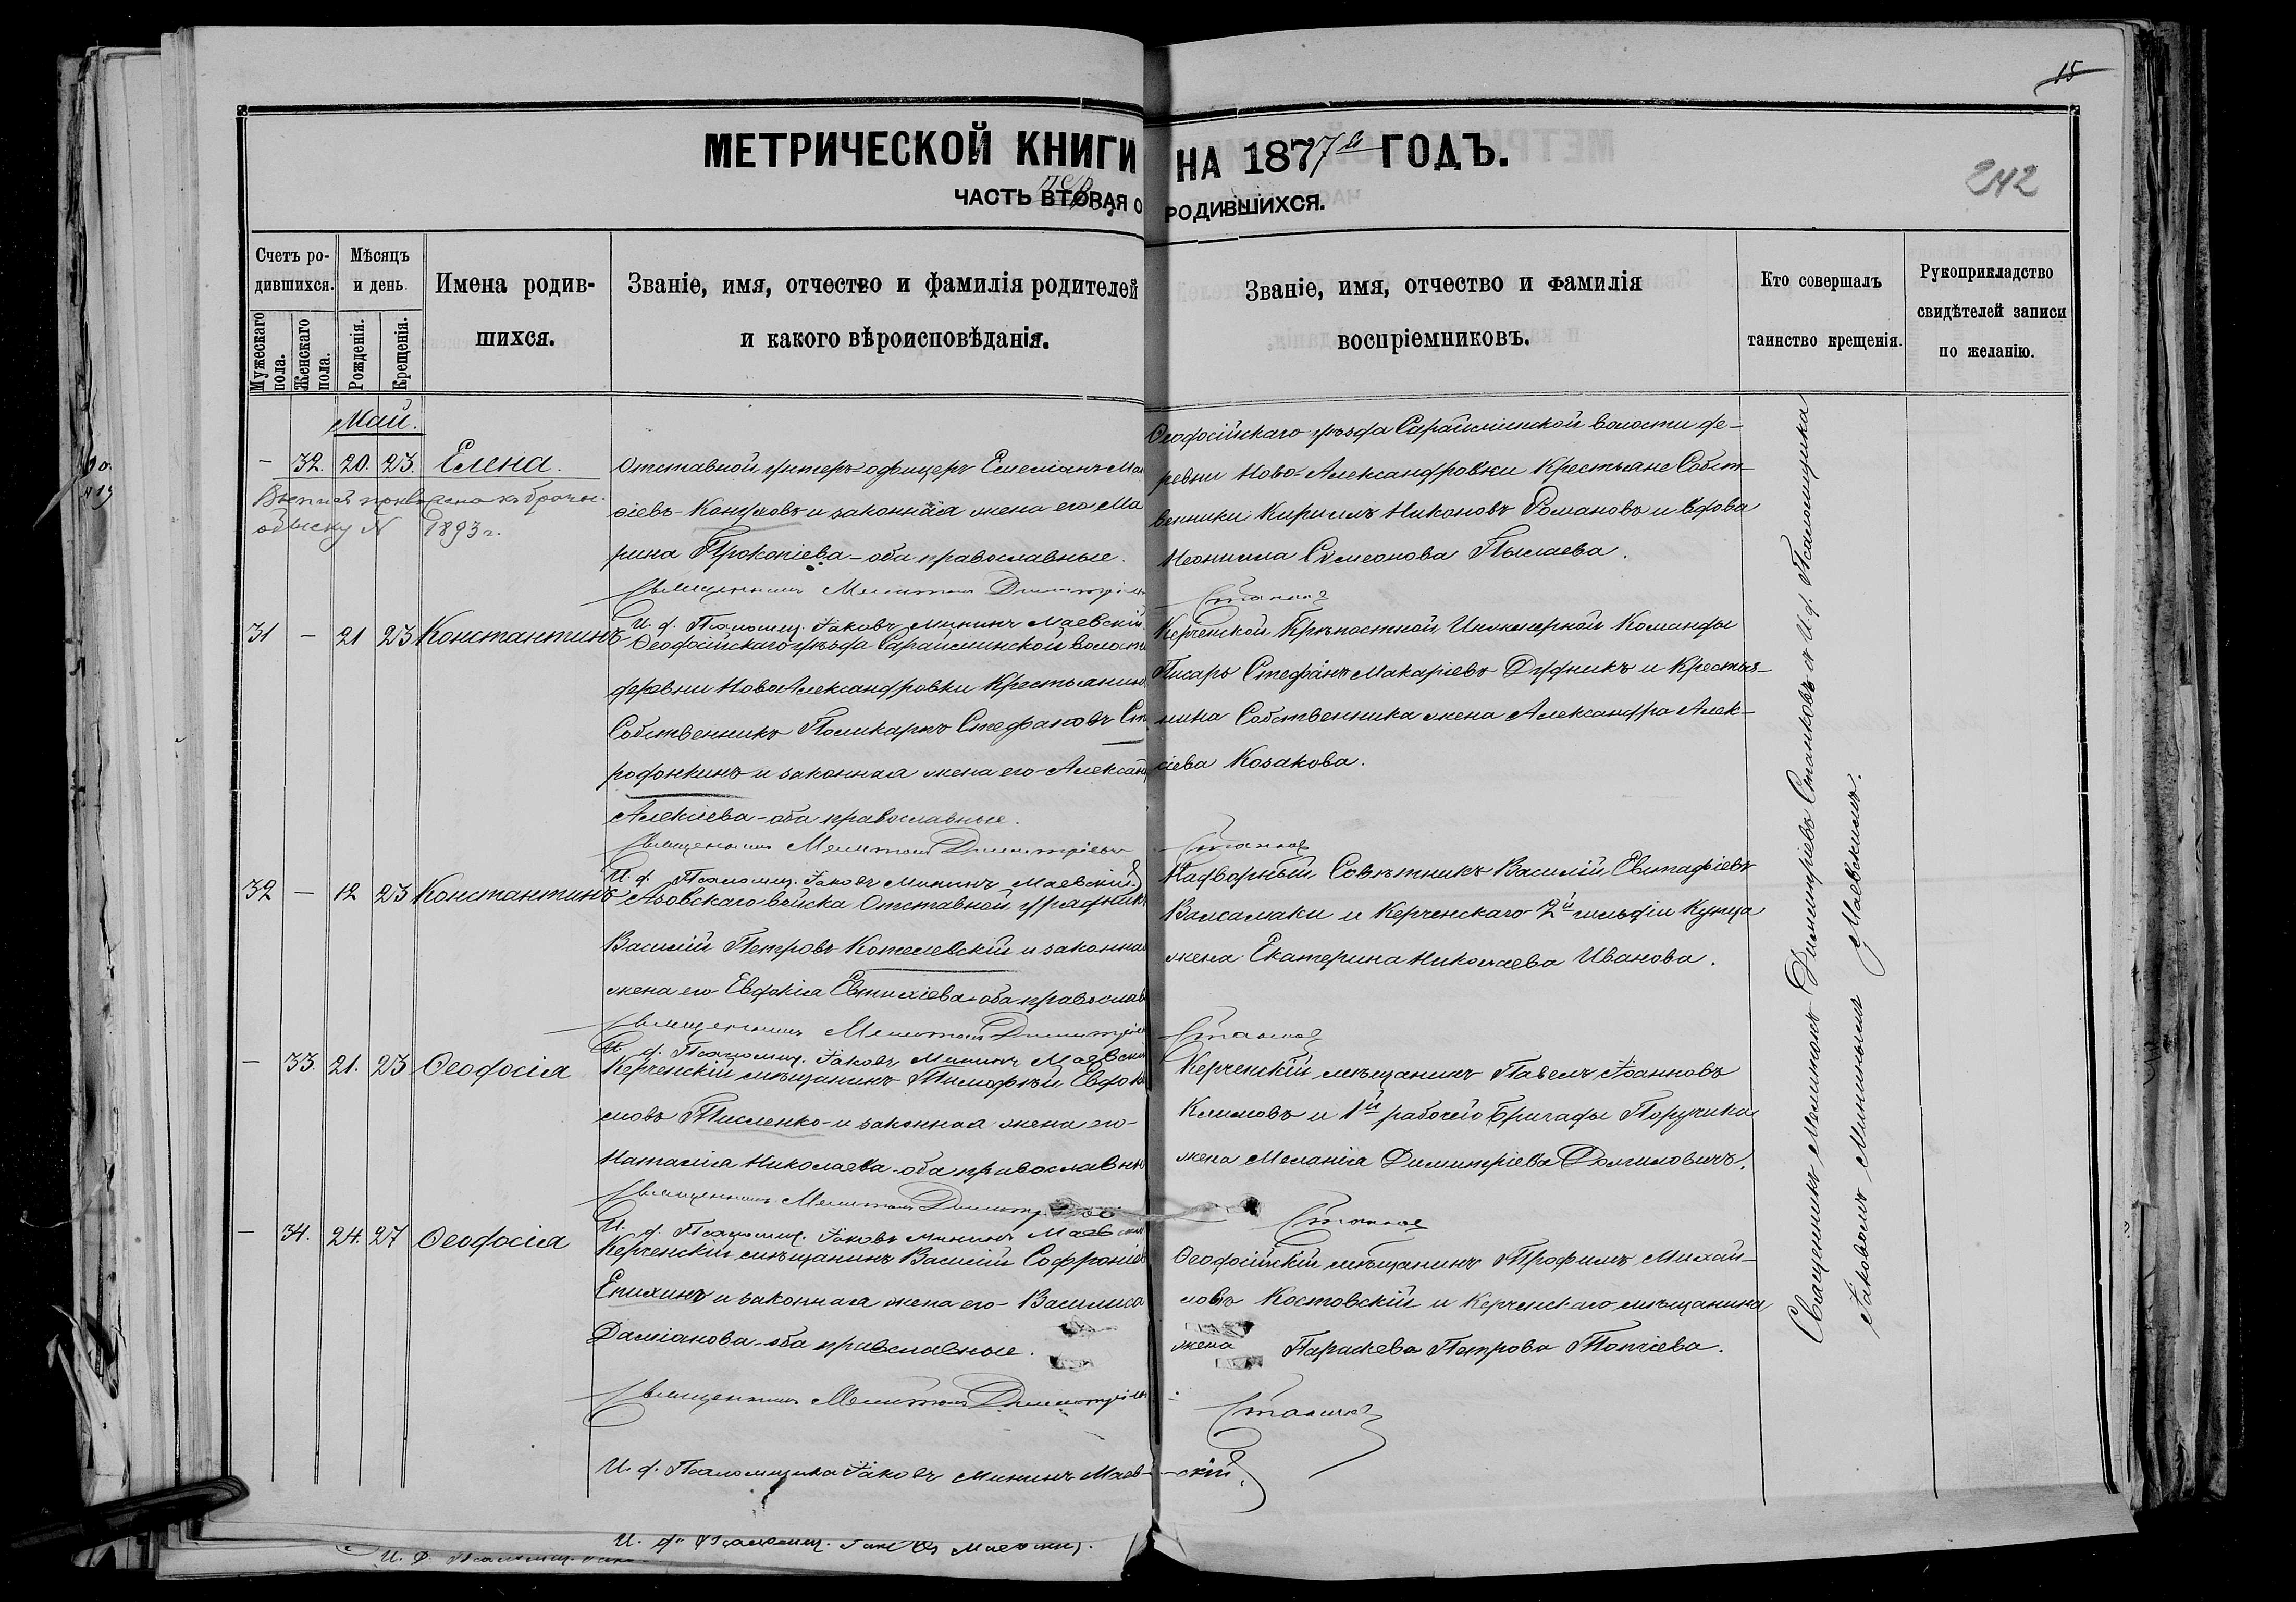 15
МЕТРИЧЕСКОЙ КНИГИ НА 1877й ГОДЪ.
242
ЧАСТЬ ВТОРАЯ О РОДИВШИХСЯ.
пер
Счетъ родившихся.
Мужескаго пола.
Женскаго пола.
Мѣсяцъ и день.
Рожденія.
Крещенія.
Имена родившихся.
Званіе, имя, отчество и фамилія родителей
и какого вѣроисповѣданія.
Званіе, имя, отчество и фамилія
воспріемниковъ.
Кто совершалъ
таинство крещенія.
Рукоприкладство
свидѣтелей записи
по желанію.
Май.
— 32. 20. 23. Елена.
обыску N 1893 г.
Отставной унтеръ-офицеръ Емеліанъ
и законная жена его Ма
рина Прокопіева - оба православные.
Священникъ Мелитонъ Димитріевъ Станковъ
И. д. Псаломщ. Іаковъ Мининъ Маевскій
Ѳеодосійскаго уѣзда Сарайминской волости де-
ревни Ново-Александровки Крестьяне Собст-
венники Кириллъ Никоновъ Романовъ и вдова
Неонилла Симеонова Пылаева.
31 — 21 23 Константинъ
Ѳеодосійскаго уѣзда Сарайминской волости
деревни НовоАлександровки Крестьянинъ
Собственникъ Поликарпъ Стефановъ Ст
рофонкинъ и законная жена его Александра
Алексіева - оба православные.
Священникъ Мелитонъ Димитріевъ Станковъ
И. д. Псаломщ. Іаковъ Мининъ Маевскій
Керченской Крѣпостной Инженерной Команды
Писарь Стефанъ Макаріевъ Дудникъ и Крестья-
нина Собственника жена Александра Алек-
сіева Козакова.
32 — 12 23 Константинъ
Азовскаго войска Отставной урядникъ
Василій Петровъ Котелевскій и законная
жена его Евдокія Евтихіева - оба православ
Священникъ Мелитонъ Димитріевъ Станковъ
И. д. Псаломщ. Іаковъ Мининъ Маевскій
Надворный Совѣтникъ Василій Евстафіевъ
Валсамаки и Керченскаго 2й гильдіи Купца
жена Екатерина Николаева Иванова.
— 33. 21. 23 Ѳеодосія
Керченскій мѣщанинъ Тимофѣй Евдоки
мовъ Тисленко - и законная жена его -
Наталія Николаева - оба православные
Священникъ Мелитонъ Димитріевъ Станковъ
И. д. Псаломщ. Іаковъ Мининъ Маевскій
Керченскій мѣщанинъ Павелъ Іоанновъ
Климовъ и 1й рабочей Бригады Поручика
жена Меланія Димитріева Домиловичъ.
— 34. 24. 27 Ѳеодосія
Керченскій мѣщанинъ Василій Софроніевъ
Епихинъ и законная жена его - Василиса
Даміанова - оба православные.
Священникъ Мелитонъ Димитріевъ Станковъ
И. д. Псаломщика Іаковъ Мининъ Маев-скій
Ѳеодосійскій мѣщанинъ Трофимъ Михай-
ловъ Костовскій и Керченскаго мѣщанина
жена Параскева Петрова Топчіева.
Священникъ Мелитонъ Димитріевъ Станковъ и И. д. Псаломщика
Іаковомъ Мининымъ Маевскимъ.
И. д. Псаломщ. Маевскій.